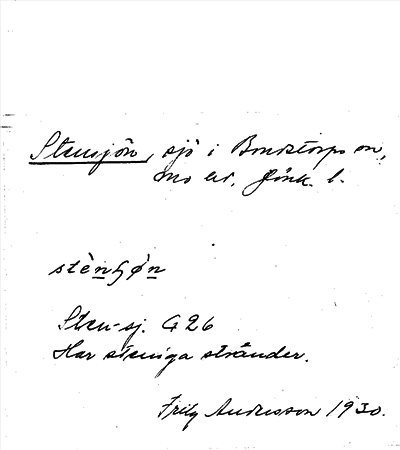 Stensjön, sjö i Bondstorps sn,
Mo hd. Jönk. l.
stènʃǿn
Sten-sj. G26
Har steniga stränder.
Fritz Andersson 1930.